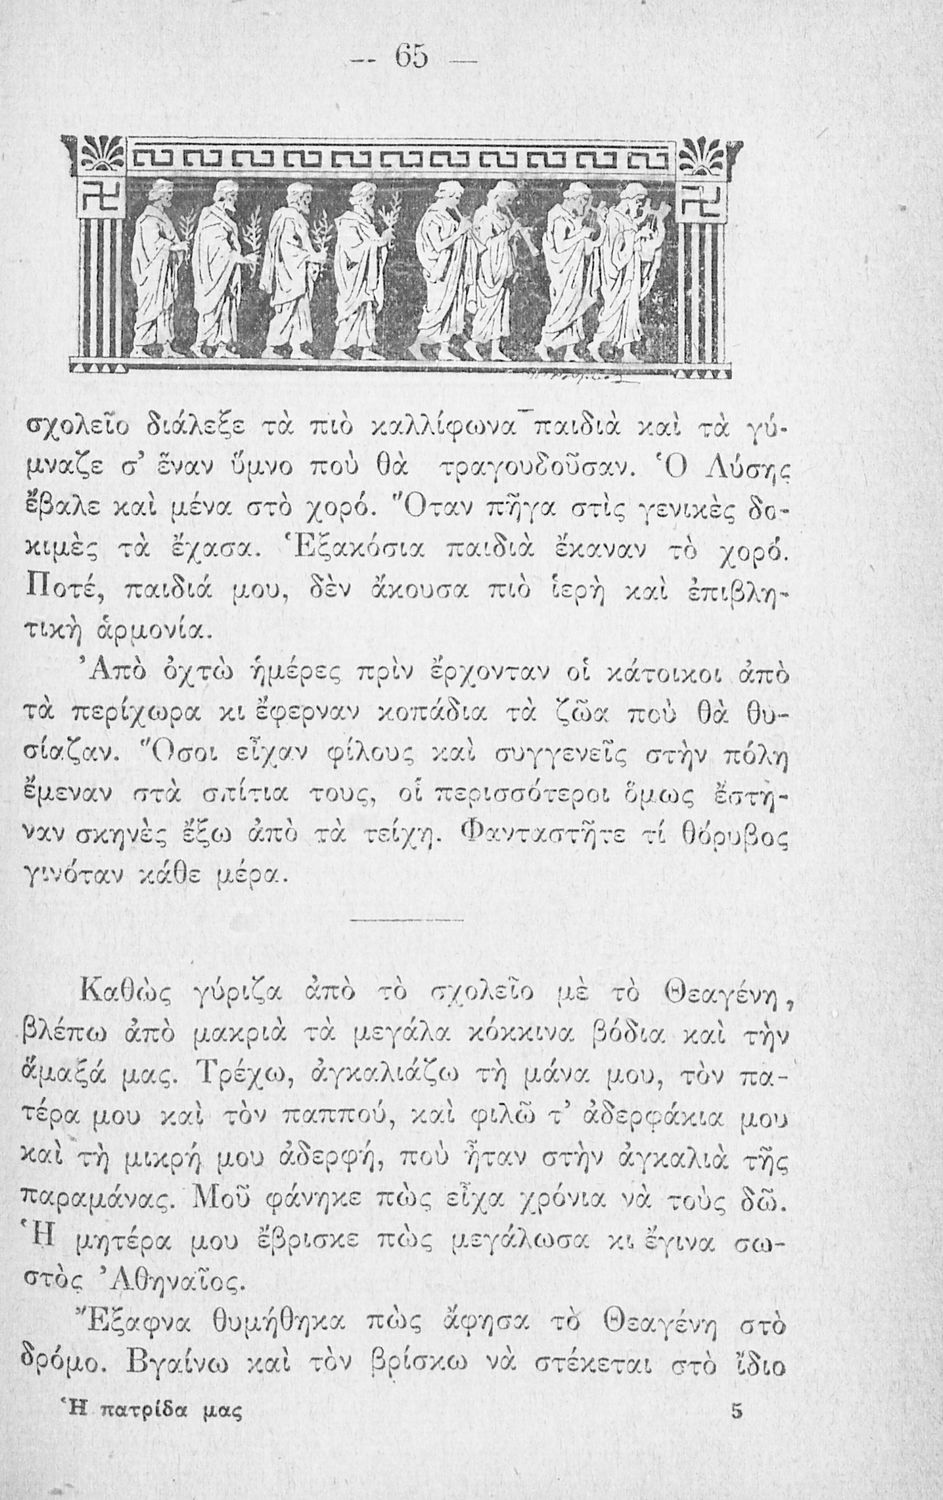 — 65 —
σχολεῖο διάλεξε τὰ πιὸ καλλίφωνα παιδιὰ καὶ τὰ γύ-
μναζε σ’ ἕναν ὕμνο ποὺ θὰ τραγουδοῦσαν. Ὁ Λύσης
ἔβαλε καὶ μένα στὸ χορό. Ὅταν πῆγα στὶς γενικὲς δο-
κιμὲς τὰ ἔχασα. Ἑξακόσια παιδιὰ ἔκαναν τὸ χορό.
Ποτέ, παιδιά μου, δὲν ἄκουσα πιὸ ἱερὴ καὶ ἐπιβλη-
τικὴ ἁρμονία.
Ἀπὸ ὀχτὼ ἡμέρες πρὶν ἔρχονταν οἱ κάτοικοι ἀπὸ
τὰ περίχωρα κι ἔφερναν κοπάδια τὰ ζῶα ποὺ θὰ θυ-
σίαζαν. Ὅσοι εἶχαν φίλους καὶ συγγενεῖς στὴν πόλη
ἔμεναν στὰ σπίτια τους, οἱ περισσότεροι ὅμως ἔστη-
ναν σκηνὲς ἔξω ἀπὸ τὰ τείχη. Φανταστῆτε τί θόρυβος
γινόταν κάθε μέρα.
Καθὼς γύριζα ἀπὸ τὸ σχολεῖο μὲ τὸ Θεαγένη,
βλέπω ἀπὸ μακριὰ τὰ μεγάλα κόκκινα βόδια καὶ τὴν
ἅμαξά μας. Τρέχω, ἀγκαλιάζω τὴ μάνα μου, τὸν πα-
τέρα μου καὶ τὸν παπποὺ, καὶ φιλῶ τ’ ἀδερφάκια μου
καὶ τὴ μικρή μου ἀδερφή, ποὺ ἦταν στὴν ἀγκαλιὰ τῆς
παραμάνας. Μοῦ φάνηκε πὼς εἶχα χρόνια νὰ τοὺς δῶ.
Ἡ μητέρα μου ἔβρισκε πὼς μεγάλωσα κι ἔγινα σω-
στὸς Ἀθηναῖος.
Ἔξαφνα θυμήθηκα πὼς ἄφησα τὸ Θεαγένη στὸ
δρόμο. Βγαίνω καὶ τὸν βρίσκω νὰ στέκεται στὸ ἴδιο
Ἡ πατρίδα μας 5